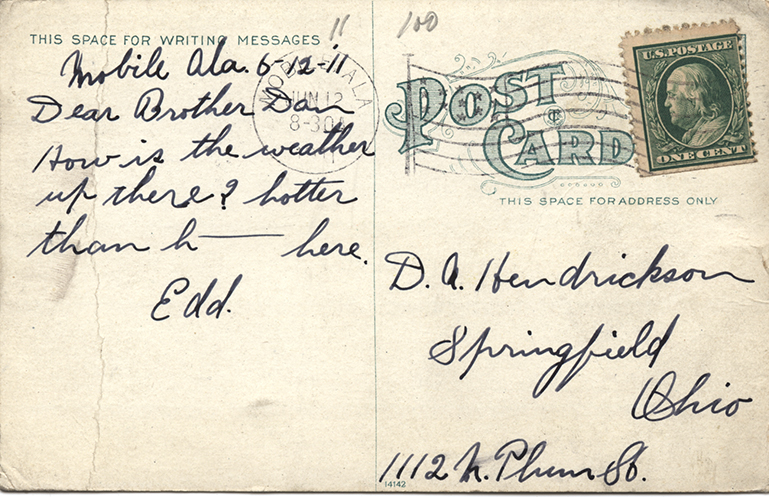 11
100
THIS SPACE FOR WRITING MESSAGES
Mobile Ala. 6-12-11
Dear Brother Dan
How is the weather
up there? hotter
than h—— here.
Edd.
ALA
JUN 12
8-30A
POST
CARD
U.S. POSTAGE
ONE CENT
THIS SPACE FOR ADDRESS ONLY
D. A. Hendrickson
Springfield
Ohio
1112 N. Plum St.
14142